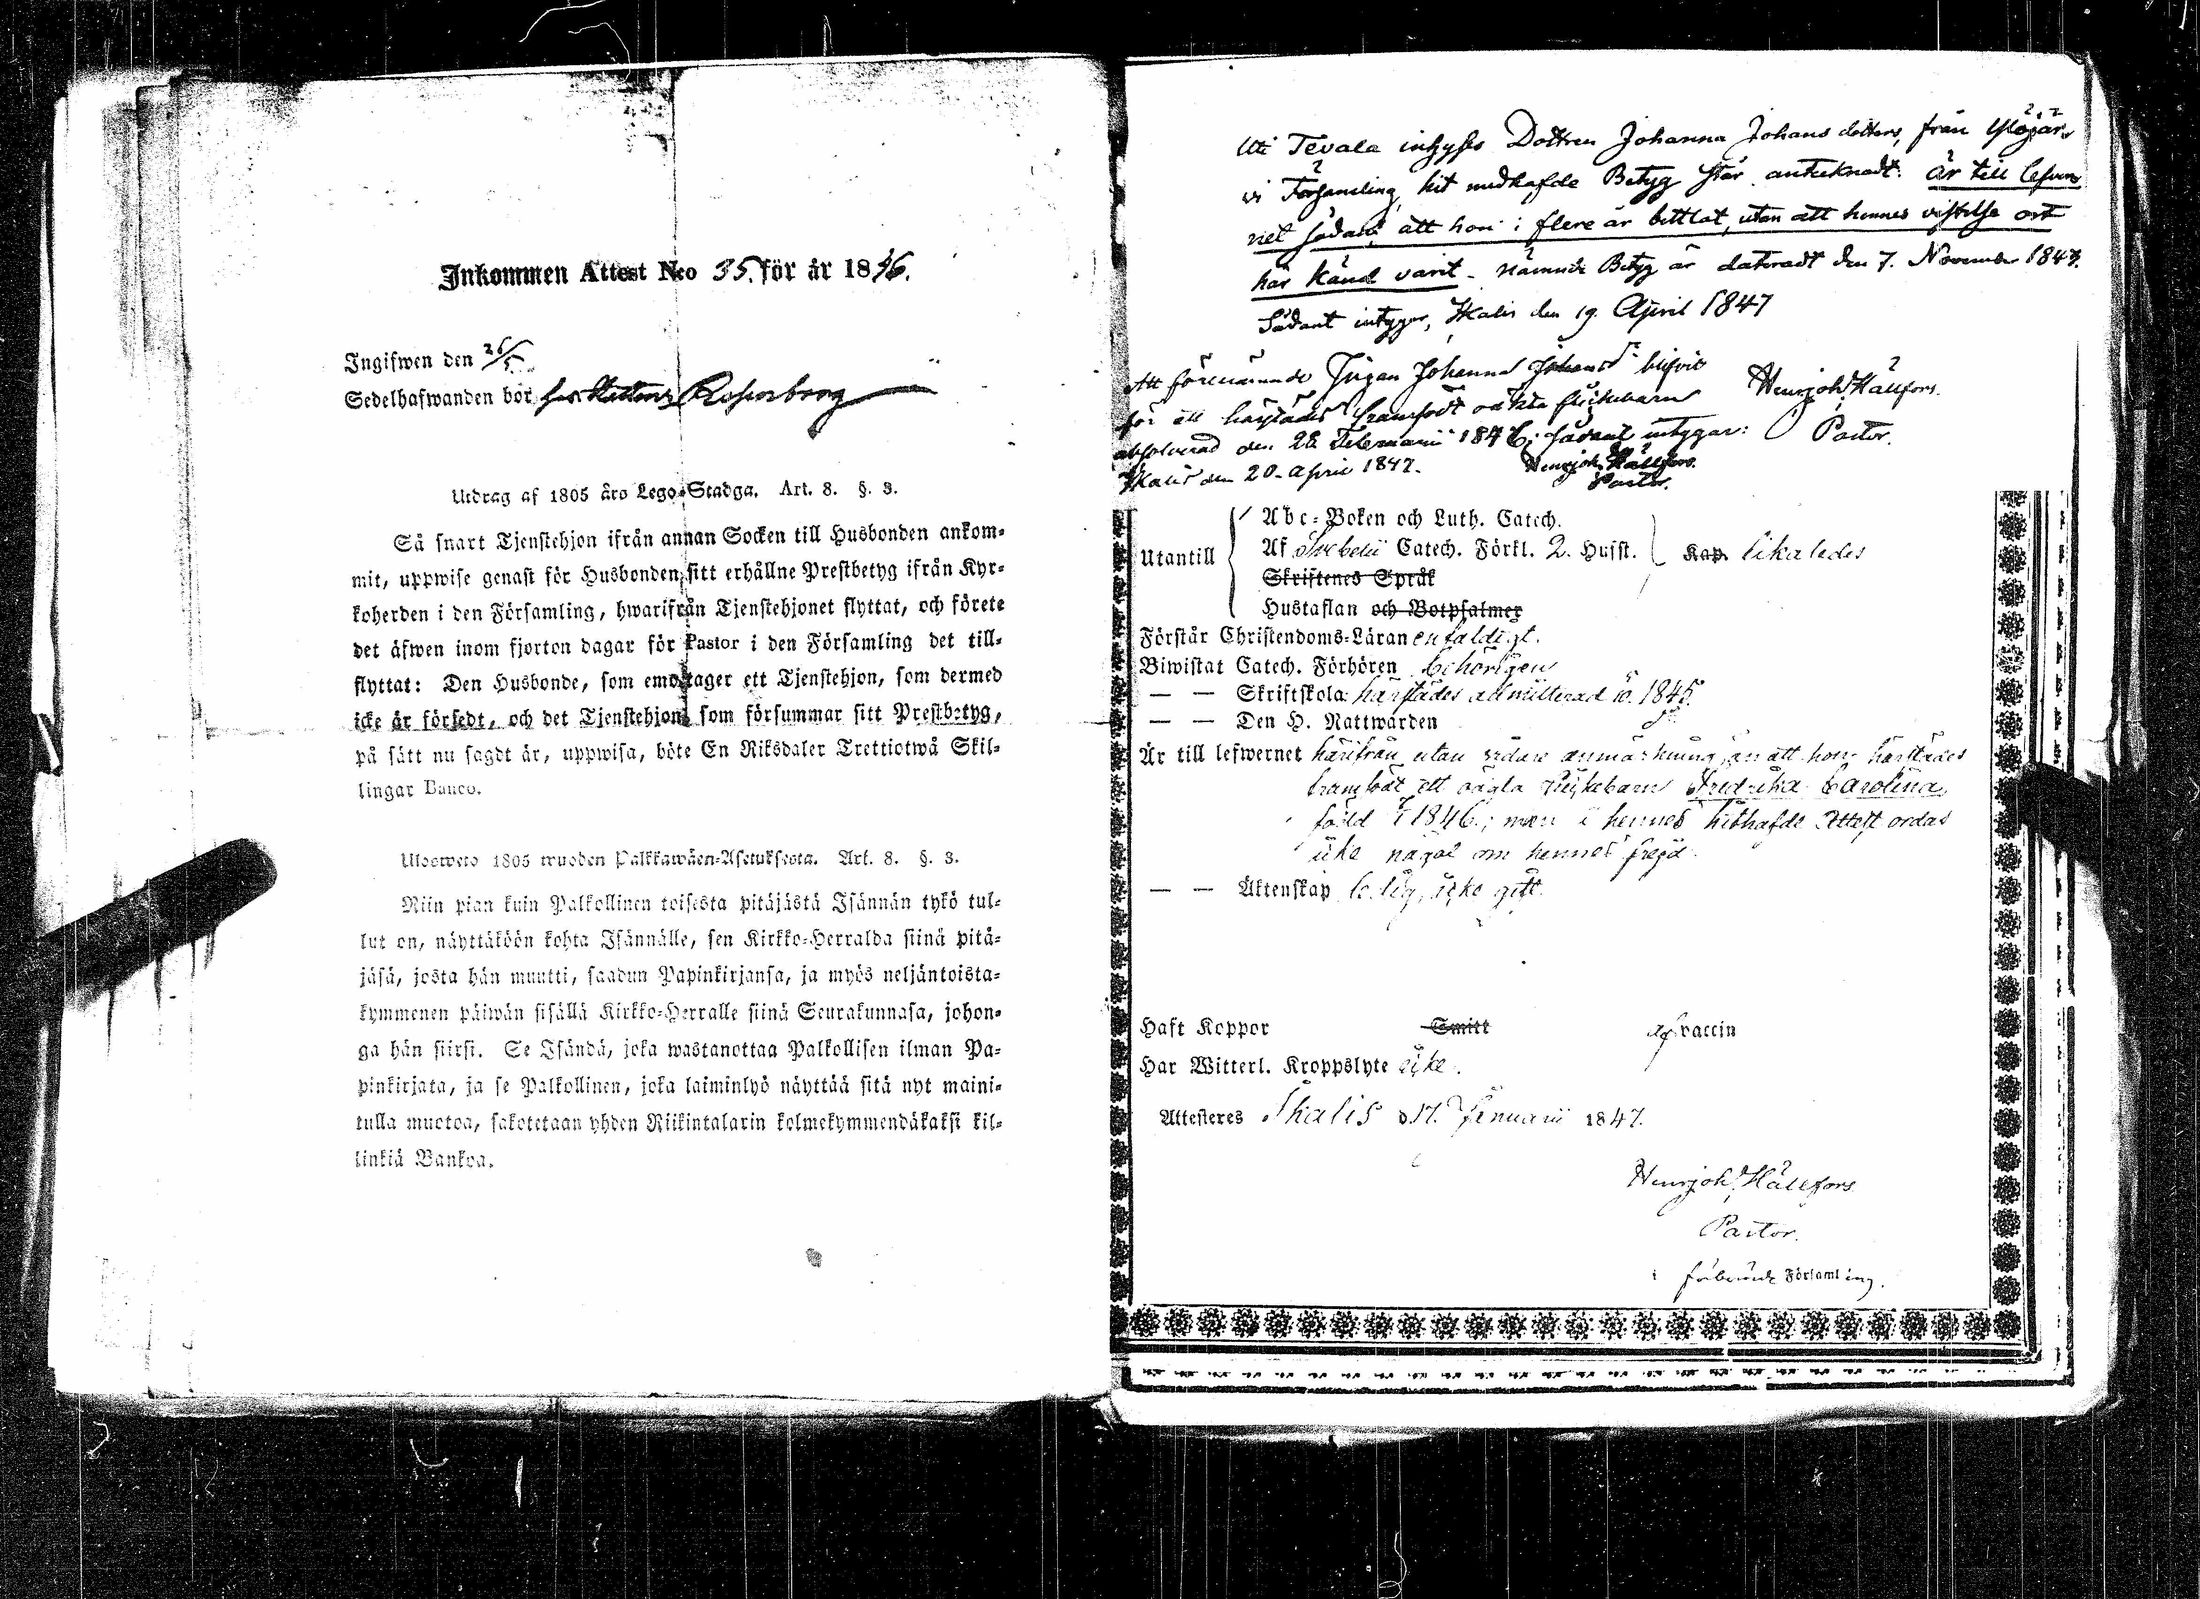 Inkommen Attest N:o 35. för år 1846.
Ingifwen den 26/5
Sedelhafwanden bor hos
Utdrag af 1805 års Lego-Stadga. Art. 8. §. 3.
Så snart Tjenstehjon ifrån annan Socken till Husbonden ankom-
mit, uppwise genast för Husbonden sitt erhållne Prestbetyg ifrån Kyr-
koherden i den Församling, hwarifrån Tjenstehjonet flyttat, och förete
det äfwen inom fjorton dagar för Pastor i den Församling det till-
flyttat: Den Husbonde, som emottager ett Tjenstehjon, som dermed
icke är försedt, och det Tjenstehjon, som försummar sitt Prestbetyg,
på sätt nu sagdt är, uppwisa, böte En Riksdaler Trettiotwå Skil-
lingar Banco.
Ulosweto 1805 wuoden Palkkawäen-Asetuksesta. Art. 8. §. 3.
Niin pian kuin Palkollinen toisesta pitäjästä Isännän tykö tul-
lut on, näyttäköön kohta Isännälle, sen Kirkko-Herralda siinä pitä-
jäsä, josta hän muutti, saadun Papinkirjansa, ja myös neljäntoista-
kymmenen päiwän sisällä Kirkko-Herralle siinä Seurakunnasa, johon-
ga hän siirsi. Se Isändä, joka wastanottaa Palkollisen ilman Pa-
pinkirjata, ja se Palkollinen, joka laiminlyö näyttää sitä nyt maini-
tulla muotoa, sakotetaan yhden Riikintalarin kolmekymmendäkaksi kil-
linkiä Bankoa.
Uti Tevala inhyses Dottren Johanna Johans dotters, från
vi Församling, hit medhafde Betyg står antecknadt: är till lefver-
net sådan, att hon i flere år bettlat, utan att hennes vistelse ort
här känd varit - nämnde Betyg är dateradt den 7. November 1843.
Sådant intygar, Skalis den 19. April 1847
Henrjoh. Hällfors.
Pastor.
Att förenämnde Pigan Johanna Johansdr blifvit
för ett härstädes framfödt oäkta flickebarn
absolverad den 28 Februarii 1846; sådant intygar:
Skalis den 20. April 1847.
Henrjoh. Hällfors.
Pastor.
Utantill
Abc-Boken och Luth. Catech.
Af Svebelii Catech. Förkl. 2. Hufst. Kap. likaledes
Skriftenes Språk
Hustaflan och Botpsalmer
Förstår Christendoms-Läran enfaldigt.
Biwistat Catech. Förhören behörigen
— — Skriftskola härstädes admitterad 1845.
— — Den H. Nattwarden
Är till lefwernet härifrån utan vidare anmärkning, än att hon härstädes
framfödt ett oägta flickebarn Fredrika Carolina,
född 1846; men i hennes hithafde Attest ordas
icke något om hennes frejd.
— — Äktenskap ledig, icke gift.
Haft Koppor Smitt af vaccin
Har Witterl. Kroppslyte icke.
Attesteres Skalis d. 17. Januarii 1847.
Henrjoh. Hällfors
Pastor.
i förberörde Församling.